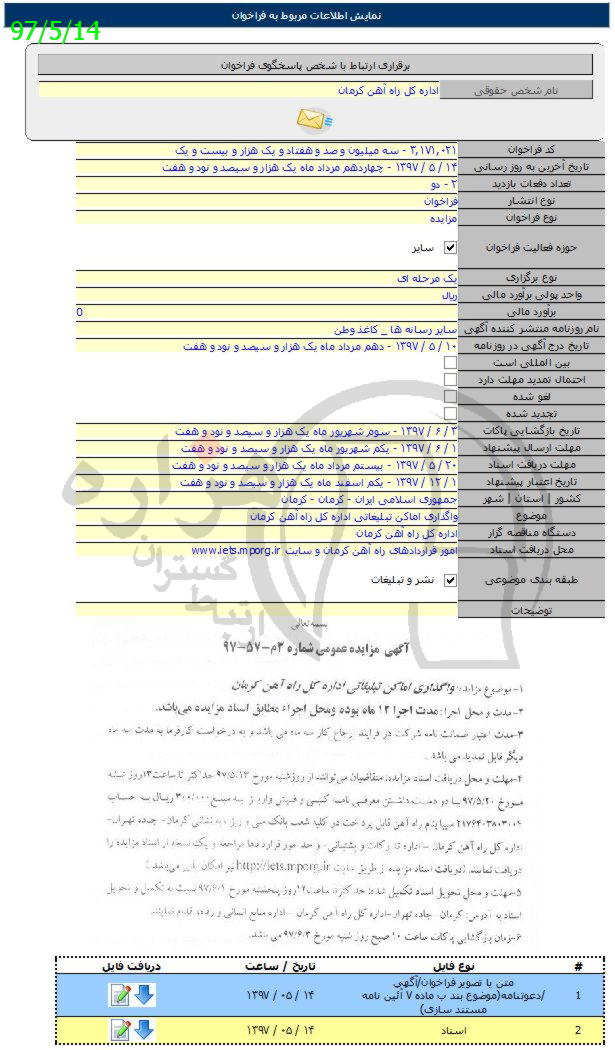 نمایش اطلاعات مربوط به فراخوان
97/5/14
برقراری ارتباط با شخص پاسخگوی فراخوان
نام شخص حقوقی اداره کل راه آهن کرمان
کد فراخوان ۳,۱۷۱,۰۲۱ - سه میلیون و صد و هفتاد و یک هزار و بیست و یک
تاریخ آخرین به روز رسانی ۱۴ / ۵ / ۱۳۹۷ - چهاردهم مرداد ماه یک هزار و سیصد و نود و هفت
تعداد دفعات بازدید ۲ - دو
نوع انتشار فراخوان
نوع فراخوان مزایده
حوزه فعالیت فراخوان سایر
نوع برگزاری یک مرحله ای
واحد پولی برآورد مالی ریال
برآورد مالی 0
نام روزنامه منتشر کننده آگهی سایر رسانه ها _ کاغذ وطن
تاریخ درج آگهی در روزنامه ۱۰ / ۵ / ۱۳۹۷ - دهم مرداد ماه یک هزار و سیصد و نود و هفت
بین المللی است
احتمال تمدید مهلت دارد
لغو شده
تجدید شده
تاریخ بازگشایی پاکات ۳ / ۶ / ۱۳۹۷ - سوم شهریور ماه یک هزار و سیصد و نود و هفت
مهلت ارسال پیشنهاد ۱ / ۶ / ۱۳۹۷ - یکم شهریور ماه یک هزار و سیصد و نود و هفت
مهلت دریافت اسناد ۲۰ / ۵ / ۱۳۹۷ - بیستم مرداد ماه یک هزار و سیصد و نود و هفت
تاریخ اعتبار پیشنهاد ۱ / ۱۲ / ۱۳۹۷ - یکم اسفند ماه یک هزار و سیصد و نود و هفت
کشور | استان | شهر جمهوری اسلامی ایران - کرمان - کرمان
موضوع واگذاری اماکن تبلیغاتی اداره کل راه آهن کرمان
دستگاه مناقصه گزار اداره کل راه آهن کرمان
محل دریافت اسناد امور قراردادهای راه آهن کرمان و سایت www.iets.mporg.ir
طبقه بندی موضوعی نشر و تبلیغات
توضیحات
هزاره
گستران
ارتباط
بسمه تعالی
آگهی مزایده عمومی شماره ۳م-۵۷-۹۷
۱-موضوع مزایده: واگذاری اماکن تبلیغاتی اداره کل راه آهن کرمان
۲-مدت و محل اجرا: مدت اجرا ۱۲ ماه بوده ومحل اجراء مطابق اسناد مزایده می‌باشد.
۳-مدت اعتبار ضمانت نامه شرکت در فرایند ارجاع کار سه ماه می باشد و به درخواست کارفرما به مدت سه ماه
دیگر قابل تمدید می باشد.
۴-مهلت و محل دریافت اسناد مزایده: متقاضیان می‌توانند از روزشنبه مورخ ۹۷/۵/۱۳ حداکثر تا ساعت ۱۳روز شنبه
مورخ ۹۷/۵/۲۰ با در دست داشتن معرفی نامه کتبی و فیش واریز به مبلغ ۳۰۰/۰۰۰ ریال به حساب
۲۱۷۶۴۰۳۸۰۳۰۰۴ سیبا بنام راه آهن قابل پرداخت در کلیه شعب بانک ملی و نیز به نشانی کرمان- جاده تهران-
اداره کل راه آهن کرمان - اداره تدارکات و پشتیبانی- واحد امور قراردادها مراجعه و یک نسخه از اسناد مزایده را
دریافت نمایند. (دریافت اسناد مزایده از طریق سایت http://iets.mporg.ir نیز امکان پذیر می‌باشد.)
۵-مهلت و محل تحویل اسناد تکمیل شده: حداکثر تا ساعت ۱۲روز پنجشنبه مورخ ۹۷/۶/۱ نسبت به تکمیل و تحویل
اسناد به آدرس: کرمان- جاده تهران-اداره کل راه آهن کرمان - اداره منابع انسانی و رفاه، اقدام نمایند.
۶-زمان بازگشایی پاکات ساعت ۱۰ صبح روز شنبه مورخ ۹۷/۶/۳ می باشد.
# نوع فایل تاریخ / ساعت دریافت فایل
متن یا تصویر فراخوان/آگهی
1 /دعوتنامه(موضوع بند ب ماده ۷ آئین نامه ۱۴ / ۰۵ / ۱۳۹۷
مستند سازی)
2 اسناد ۱۴ / ۰۵ / ۱۳۹۷